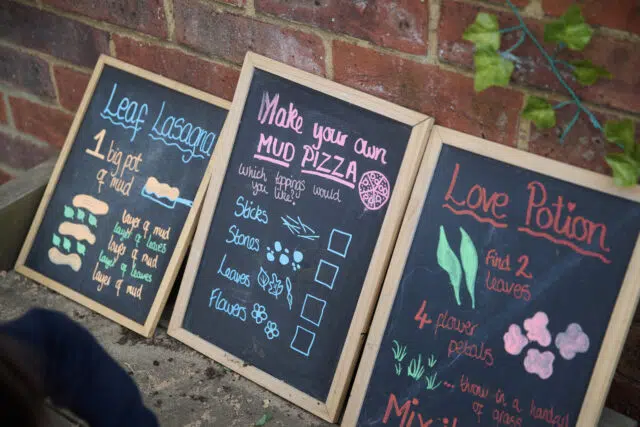 Leaf Lasagna
1 big pot
of mud
layer of mud
layer of leaves
layer of mud
layer of leaves
layer of mud
Make your own
MUD PIZZA
which toppings would
you like?
Sticks
Stones
Leaves
Flowers
Love Potion
Find 2
leaves
4 flower
petals
... throw in a handful
of grass
Mix it